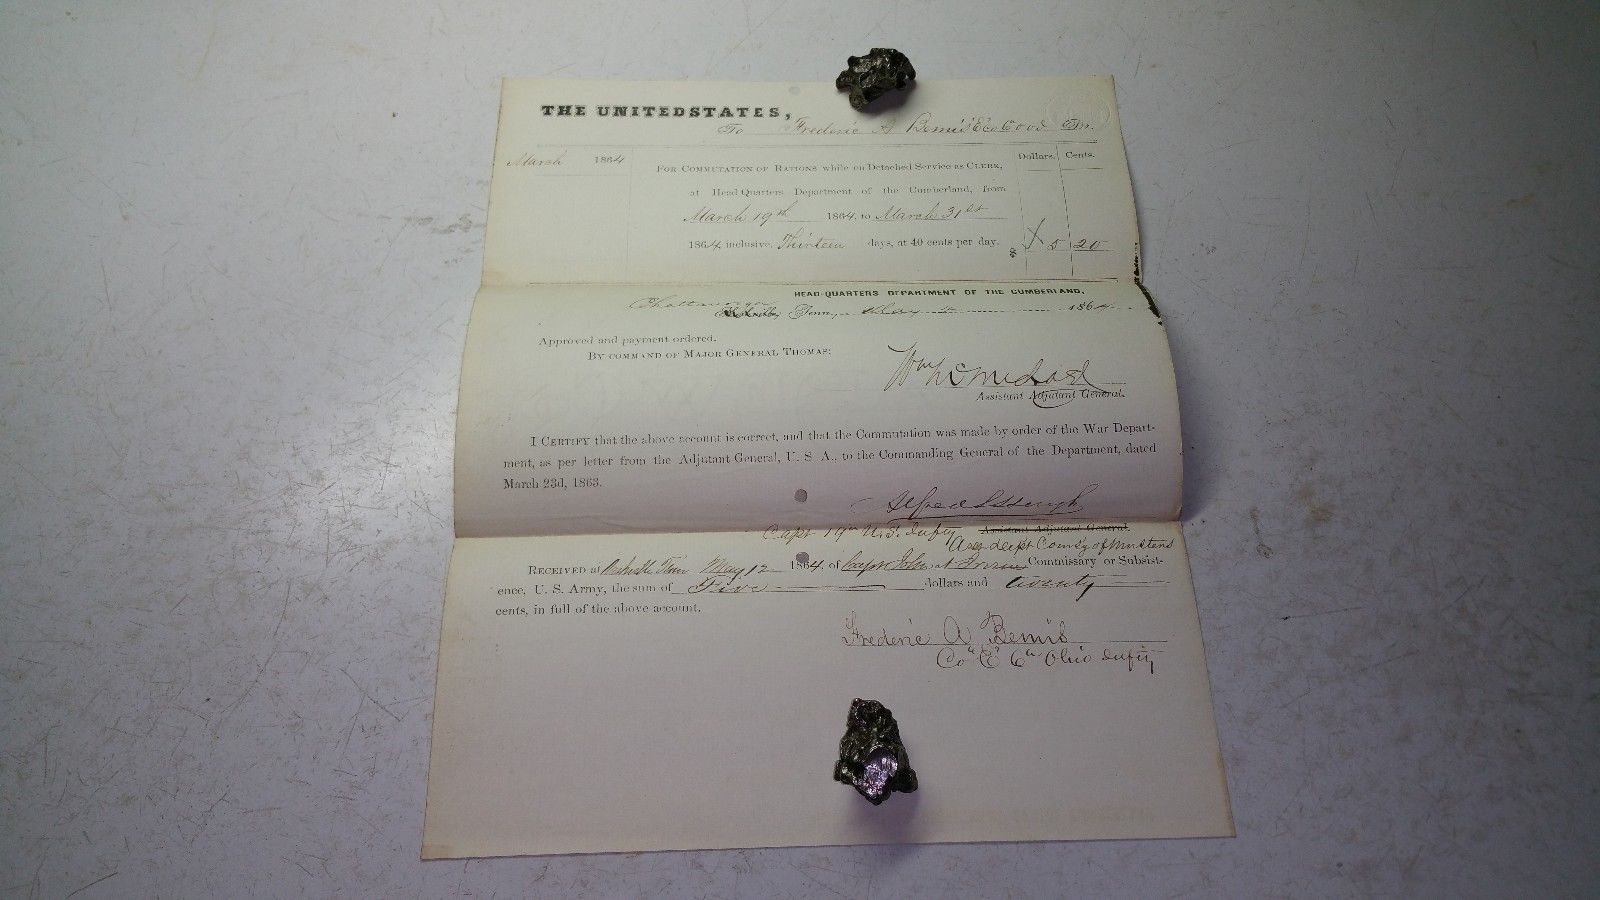 THE UNITEDSTATES,
To Frederic A Bemis Dr.
March 1864
Dollars. Cents.
FOR COMMUTATION OF RATIONS while on Detached Service as CLERK,
at Head-Quarters Department of the Cumberland, from
March 19th 1864, to March 31st
1864, inclusive, Thirteen days, at 40 cents per day. $ 5 20
HEAD-QUARTERS DEPARTMENT OF THE CUMBERLAND,
Chattanooga Tenn., May 1864
Approved and payment ordered.
BY COMMAND OF MAJOR GENERAL THOMAS:
Wm
Assistant Adjutant General.
I CERTIFY that the above account is correct, and that the Commutation was made by order of the War Depart-
ment, as per letter from the Adjutant General, U. S. A., to the Commanding General of the Department, dated
March 23d, 1863.
Alfred
Capt 19th U.S. Infty Assistant Adjutant General.
of Musters
RECEIVED at Nashville Tenn May 12 1864, of Capt John Commissary or Subsist-
ence, U. S. Army, the sum of Five dollars and twenty
cents, in full of the above account.
Frederic A Bemis
Co "E" 6th Ohio Infty